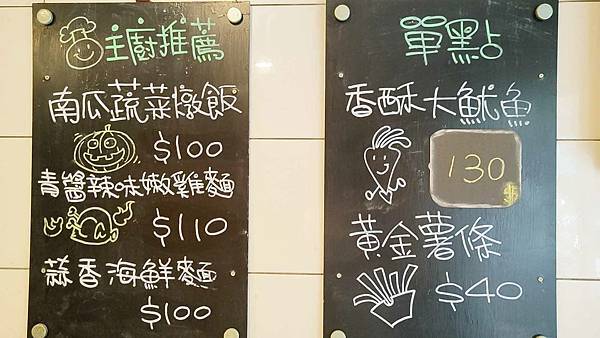 主廚推薦
南瓜蔬菜燉飯
$100
青醬辣味嫩雞麵
$110
蒜香海鮮麵
$100
單點
香酥大魷魚
130
$
黃金薯條
$40